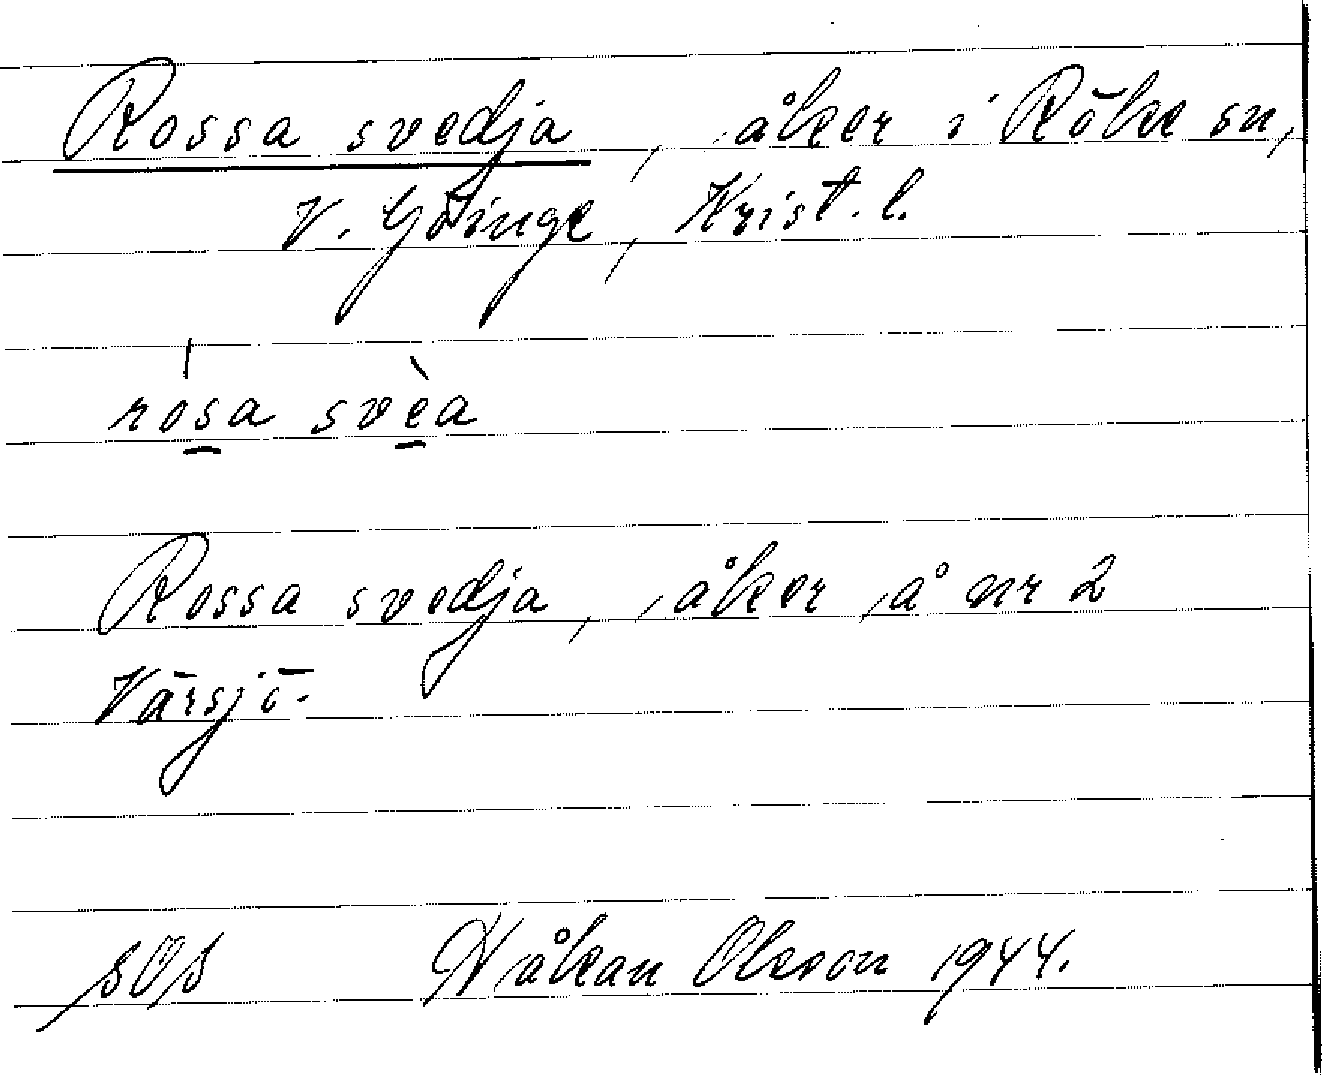 Rossa svedja, åker i Röke sn,
V. Göinge, Krist. l.
rósa svèa
Rossa svedja, åker å nr 2
Värsjö.
SOS Håkan Olsson 1944.